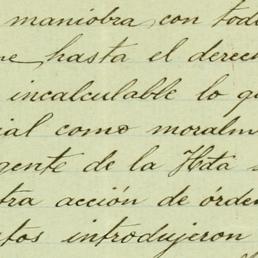 maniobra con tod
e hasta el derec
incalculable lo q
ial como moralm
gente de la Hda
tra acción de órde
tos introdujeron